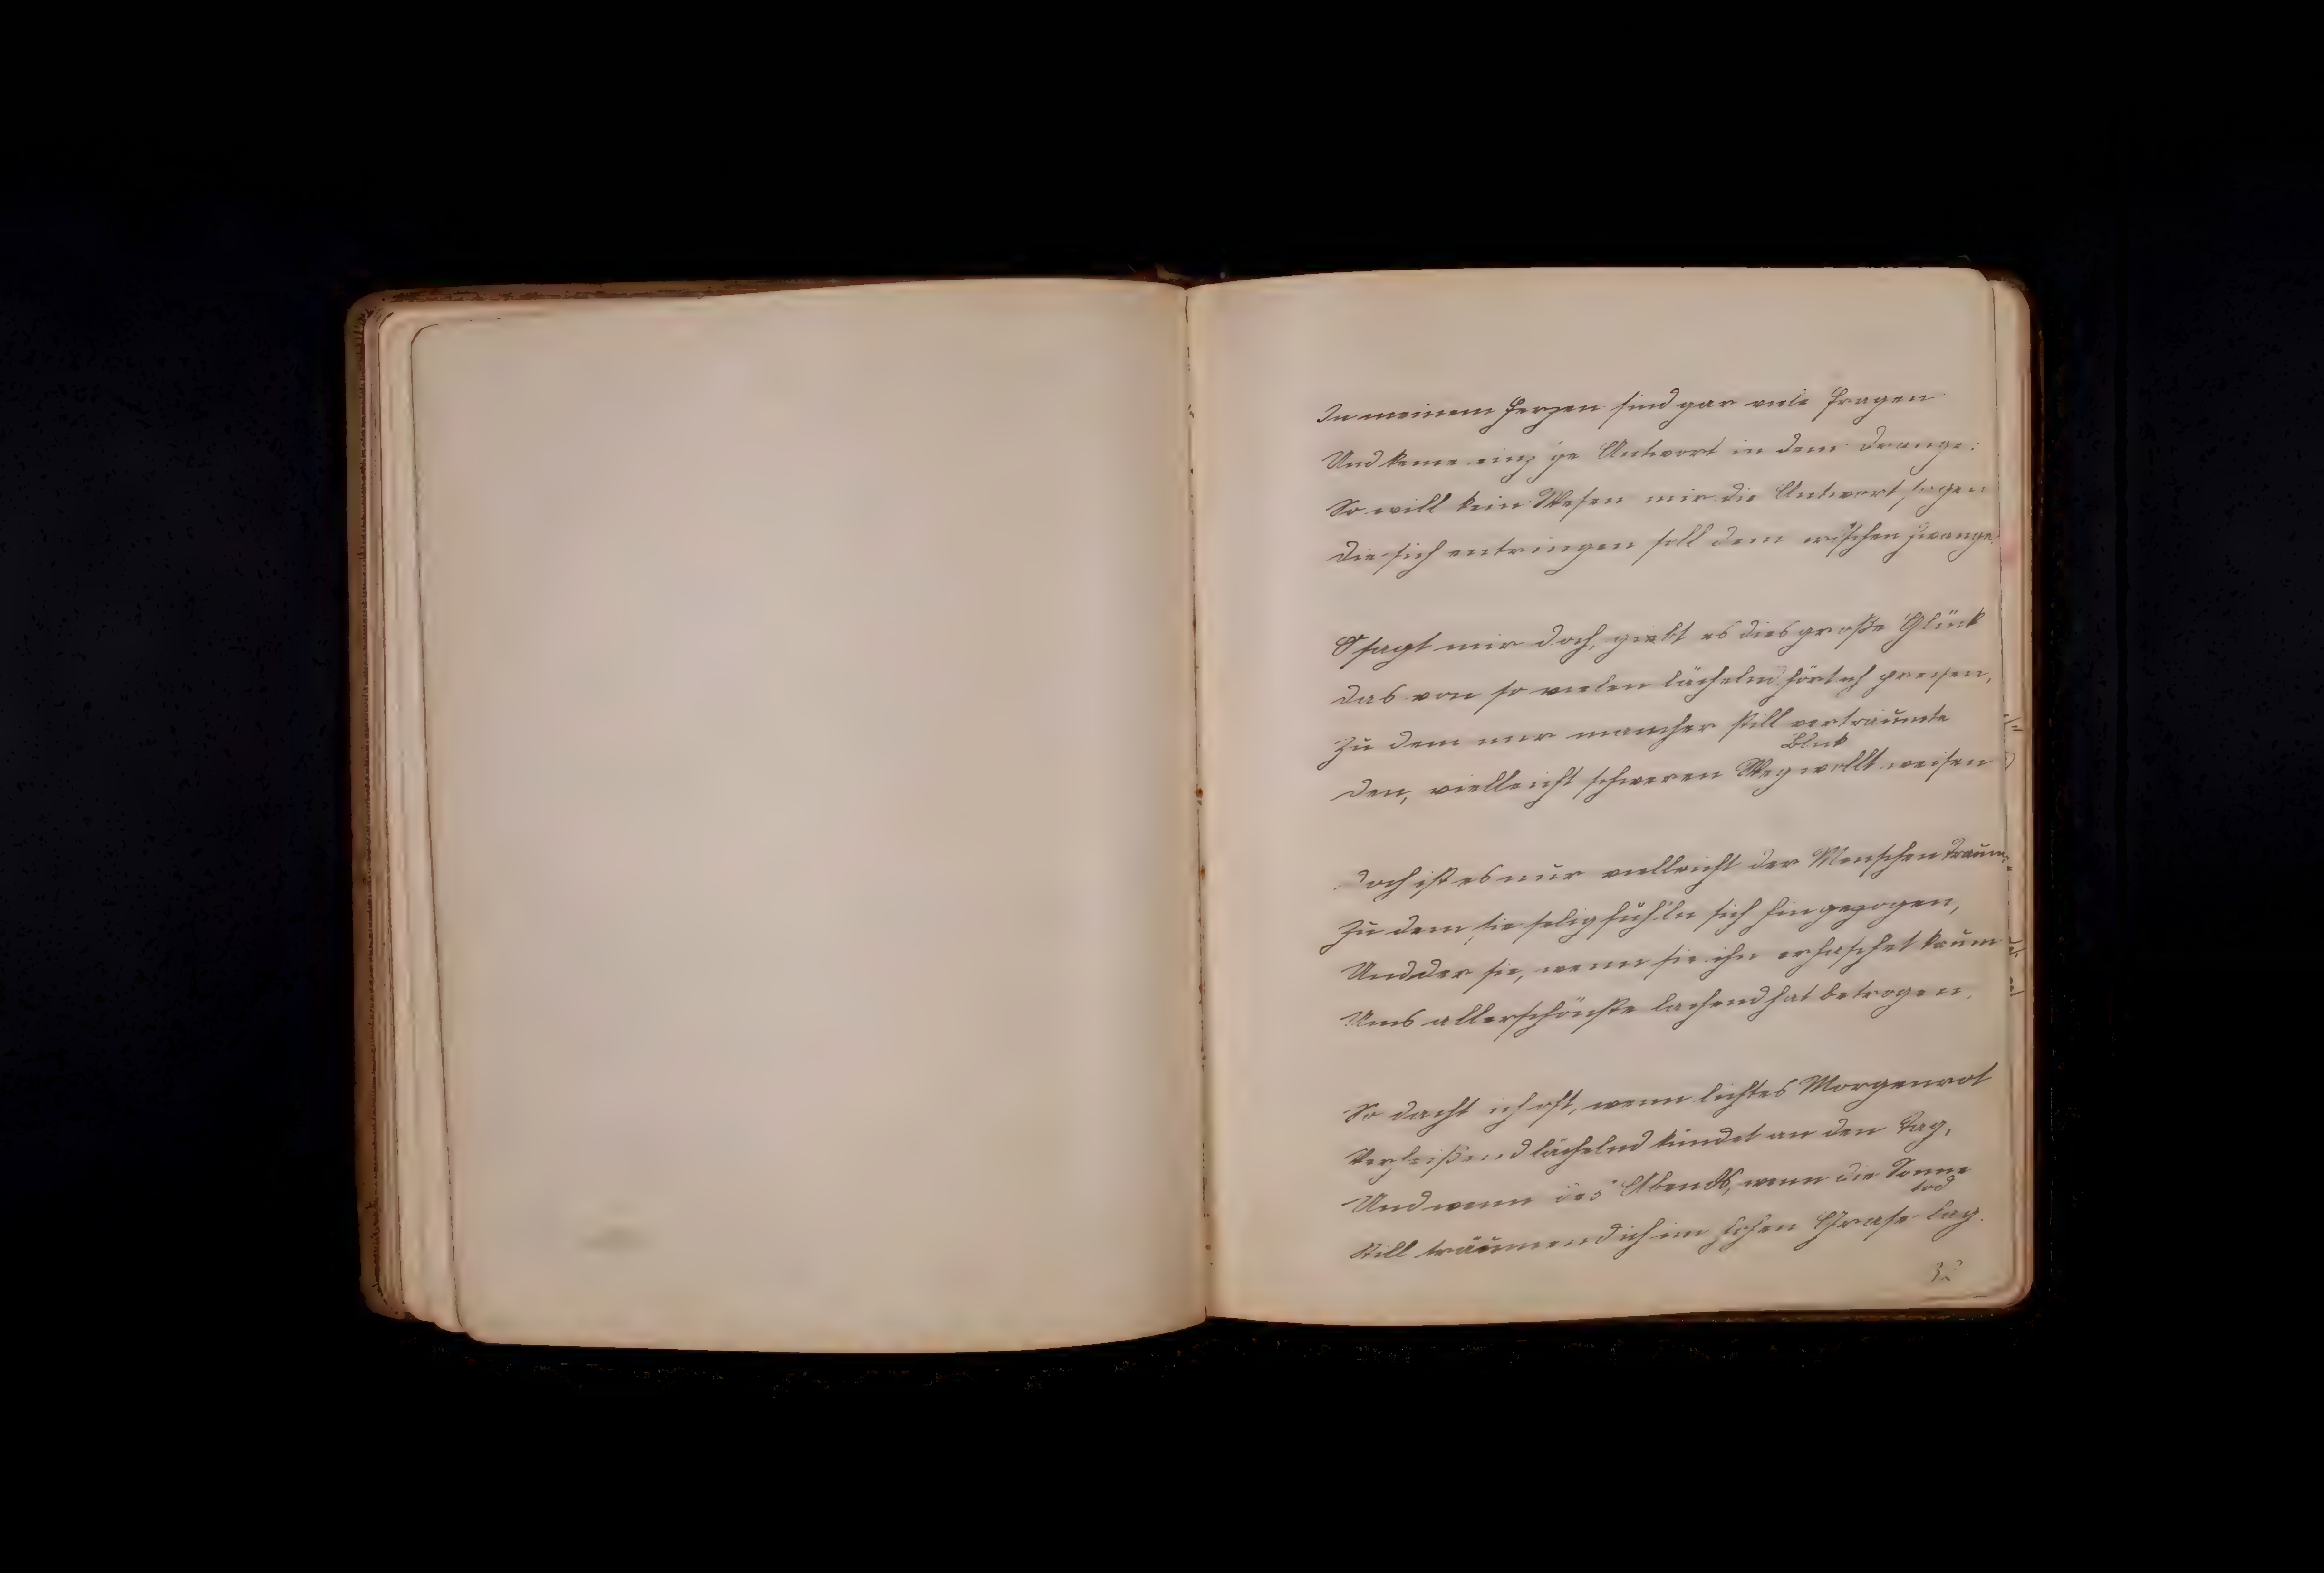 In meinem Herzen sind gar viele Fragen
Und keine einz'ge Antwort in dem Drange:
So will kein Wesen mir die Antwort sagen
Die sich entringen soll dem irdischen Zwange.
O sagt mir doch, giebt es dies große Glück
Das von so vielen lächelnd hört ich preisen,
Zu dem mir mancher still verträumte
Blick
Den, vielleicht schweren Weg wollt weisen
Doch ist es nur vielleicht der Menschen Traum,
Zu dem sie selig fühl'n sich hingezogen,
Und der sie, wenn sie ihn erhaschet kaum
Ums allerschönste lachend hat betrogen.
So dacht ich oft, wenn lichtes Morgenrot
Verheißend lächelnd kündet an den Tag,
Und wenn des Abends, wenn die Sonne
tod
Still träumend ich im hohen Grase lag.
32